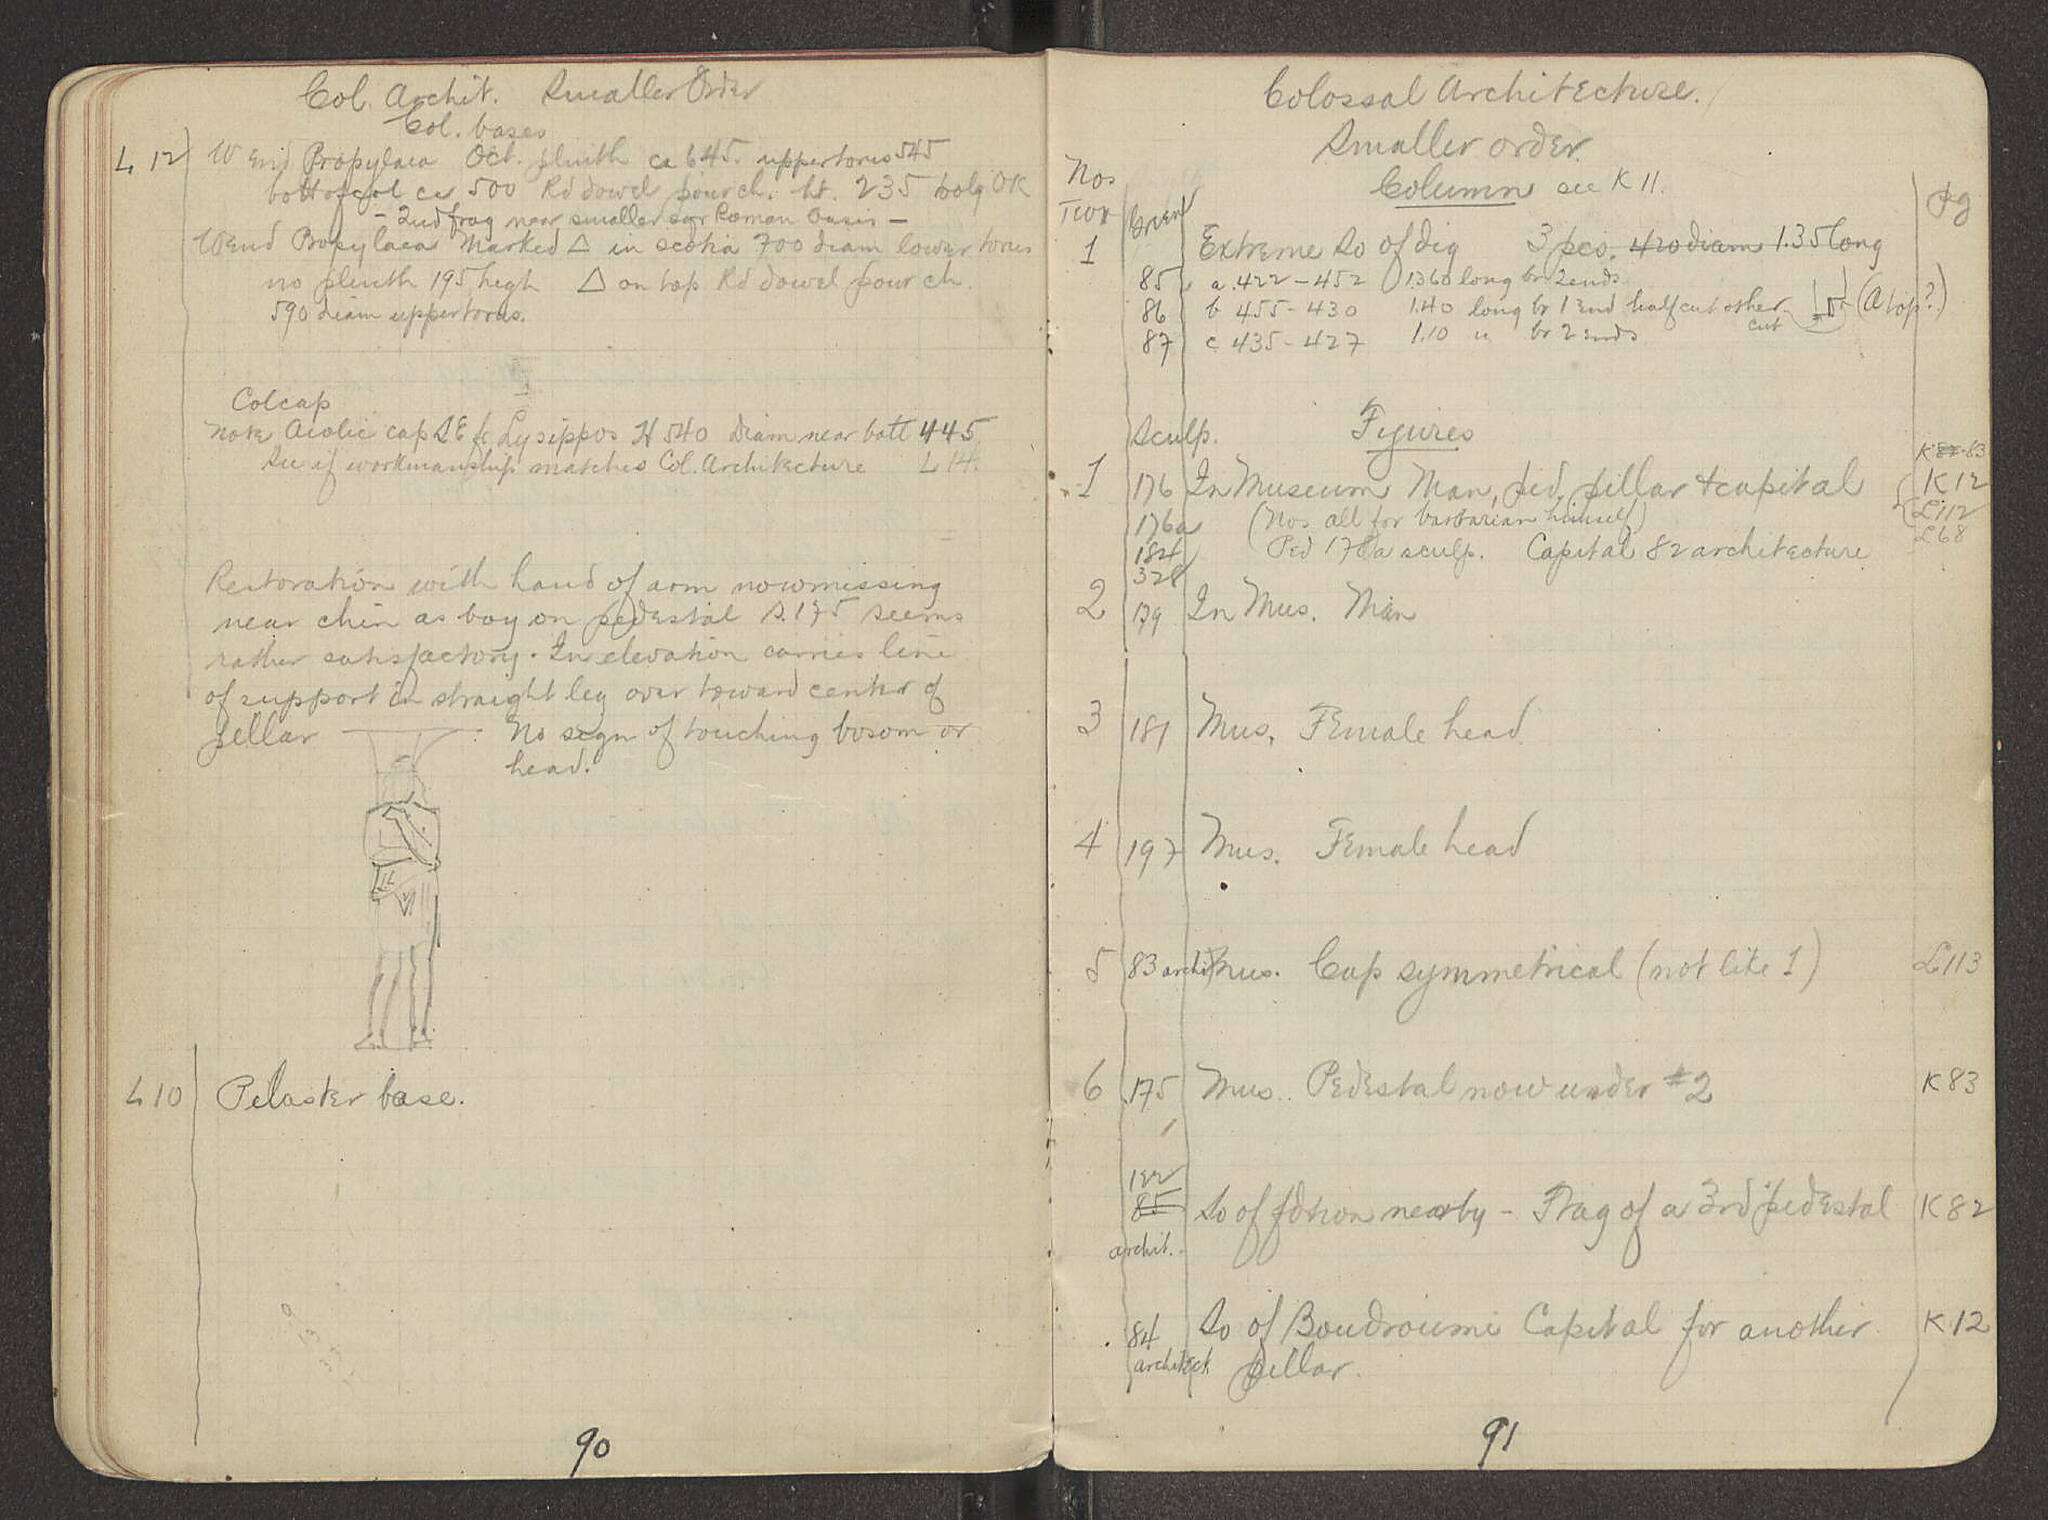 Col. Archit. Smaller Order
Col. bases
L 12 W End Propylaea Oct. plinth ca 645. upper torus 545
bott of col ca 500 Rd dowel pour ch. ht. 235 OK
- 2nd frag near smaller Roman basis -
W End Propylaea Marked △ in scotia 700 diam lower torus
no plinth 195 high △ on top Rd dowel pour ch.
590 diam upper torus.
Col cap
Note Aiolic cap SE fr Lysippos H 540 Diam near bott 445
See if workmanship matches Col. Architecture L 14.
Restoration with hand of arm now missing
near chin as boy on pedestal S.175 seems
rather satisfactory. In elevation carries line
of support in straight leg over toward center of
pillar No sign of touching bosom or
head.
L 10 Pilaster base.
90
Colossal Architecture.
Smaller order.
Column see K 11.
Nos
Inven
pg
1 Extreme So of dig 3 pcs. 420 diam 1.35 long
85 a .422 - 452 1.360 long br 2 ends
86 b 455 - 430 1.40 long br 1 End half cut other cut (A top?)
87 c 435 - 427 1.10 " br 2 ends
Sculp. Figures
K 82-83
1 176 In Museum Man, ped, pillar + capital K 12
176a (Nos all for barbarian himself) L 112
184 Ped 178a sculp. Capital 82 architecture L 68
328
2 179 In Mus. Man
3 181 Mus. Female head
4 197 Mus. Female head
5 83 archit Mus. Cap symmetrical (not like 1) L 113
6 175 Mus. Pedestal now under #2 K 83
182
85 So of fdtion nearby - Frag of a 3rd pedestal K 82
archit.
84 So of Boudroumi Capital for another K 12
architect pillar.
91